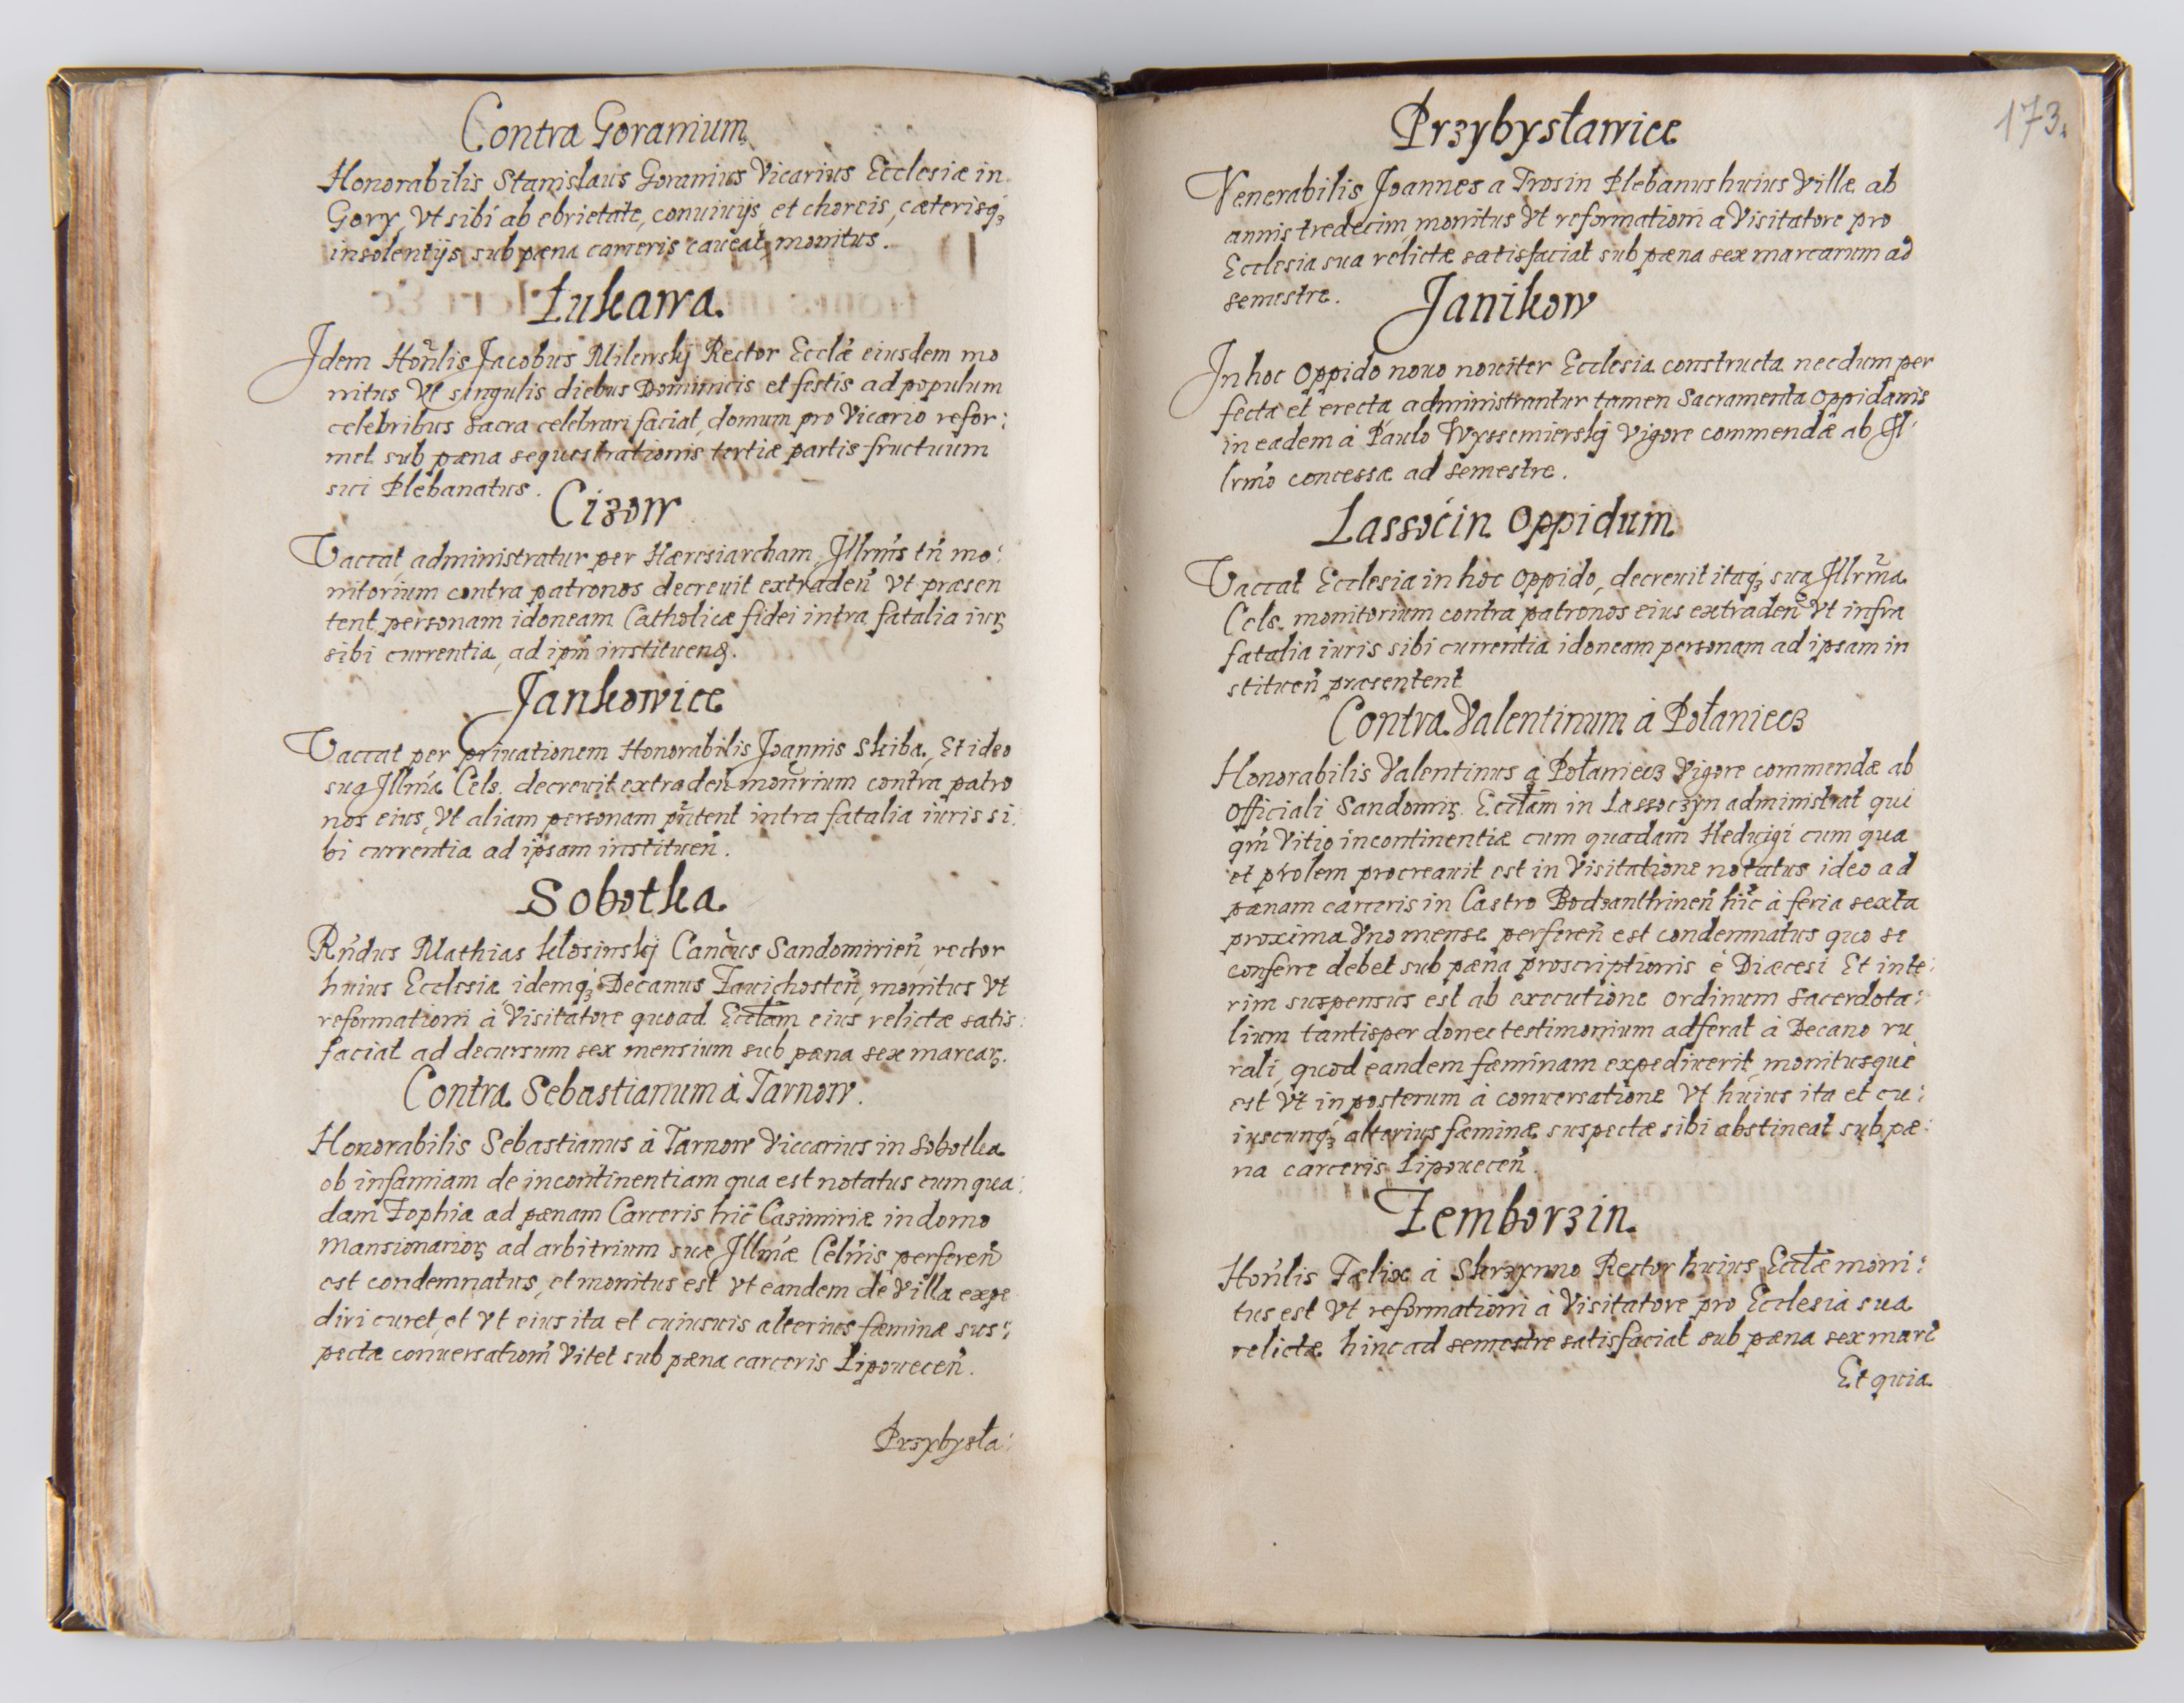 Contra Goranium
Honorabilis Stanislaus Goranius Vicarius Ecclesiæ in
Gory, Vt sibi ab ebrietate, conuiuijs et choreis, cæterisq3
insolentijs sub pæna carceris caueat, monitus.
Łukawa.
Idem Hon̄lis Jacobus Milewskij Rector Ecclæ̃ eiusdem mo
nitus Vt singulis diebus Dominicis et festis ad populum
celebribus sacra celebrari faciat, domum pro Vicario refor:
met sub pæna sequestrationis tertiæ partis fructuum
sui Plebanatus.
Cizow
Vaccat administratur per Hæresiarcham, Jllrm̃s tñ mo:
nitorium contra patronos decreuit extradeñ Vt præsen
tent personam idoneam Catholicæ fidei intra fatalia iurꝭ
sibi currentia, ad ip̃m instituenꝭ.
Jankowice
Vaccat per priuationem Honorabilis Joannis Skiba. Et ideo
sua Jllm̃a Cels. decreuit extradeñ mon̄rium contra patro
nos eius, Vt aliam personam pñtent intra fatalia iuris si:
bi currentia ad ipsam instituen̄.
Sobotka.
Rñdus Mathias Kłosinskij Can̄cus Sandomirien̄, rector
huius Ecclesiæ idemq3 Decanus Zauichosten̄, monitus Vt
reformationi à Visitatore quoad Ecctãm eius relictæ satis:
faciat ad decursum sex mensium sub pæna sex marcarꝭ.
Contra Sebastianum à Tarnow.
Honorabilis Sebastianus à Tarnow Viccarius in Sobotka
ob infamiam de incontinentiam qua est notatus cum qua:
dam Zophia ad pænam Carceris hic̃ Casimiriæ in domo
Mansionariorꝭ ad arbitrium suæ Jllm̃æ Celñis perferen̄
est condemnatus, et monitus est Vt eandem de Villa expe
diri curet, et Vt eius ita et cuiusuis alterius fæminæ sus:
pectæ conuersationm̃ Vitet sub pæna carceris Lipouecen̄.
Przybysła:
173.
Przybysławice
Venerabilis Joannes a Trosin Plebanus huius Villæ ab
annis tredecim monitus Vt reformationi a Visitatore pro
Ecclesia sua relictæ satisfaciat sub pæna sex marcarum ad
semestre.
Janikow
In hoc Oppido nouo nouiter Ecclesia constructa necdum per
fecta et erecta administrantur tamen Sacramenta Oppidanis
in eadem à Paulo Wyssemierskij Vigore commendæ ab Jl:
lrm̃o concessæ ad semestre.
Lassoćin Oppidum
Vaccat Ecclesia in hoc Oppido, decreuit itaq3 sua Jllrm̃a
Cels. monitorium contra patronos eius extraden̄ Vt infra
fatalia iuris sibi currentia idoneam personam ad ipsam in
stituen̄ præsentent
Contra Valentinum à Połaniecz
Honorabilis Valentinus à Połaniecz Vigore commendæ ab
Officiali Sandomirꝭ. Ecctãm in Lassoczyn administrat qui
qm̃ Vitio incontinentiæ cum quadam Heduigi cum qua
et prolem procreauit est in Visitatione notatus ideo ad
pænam carceris in Castro Bodzanthinen̄ hic̃ à feria sexta
proxima Vno mense perferen̄ est condemnatus quo se
conferre debet sub pæna proscriptionis è Diæcesi Et inte:
rim suspensus est ab executione ordinum sacerdota:
lium tantisper donec testimonium adferat à Decano ru
rali, quod eandem fæminam expediuerit monitusque
est Vt in posterum à conuersatione Vt huius ita et cu:
iuscunq3 alterius fæminæ suspectæ sibi abstineat sub pæ:
na carceris Lipouecen̄.
Zemborzin.
Hon̄lis Fælix à Skrzynno Rector huius Ecctæ moni:
tus est Vt reformationi à Visitatore pro Ecclesia sua
relictæ hinc ad semestre satisfaciat sub pæna sex marc̃
Et quia